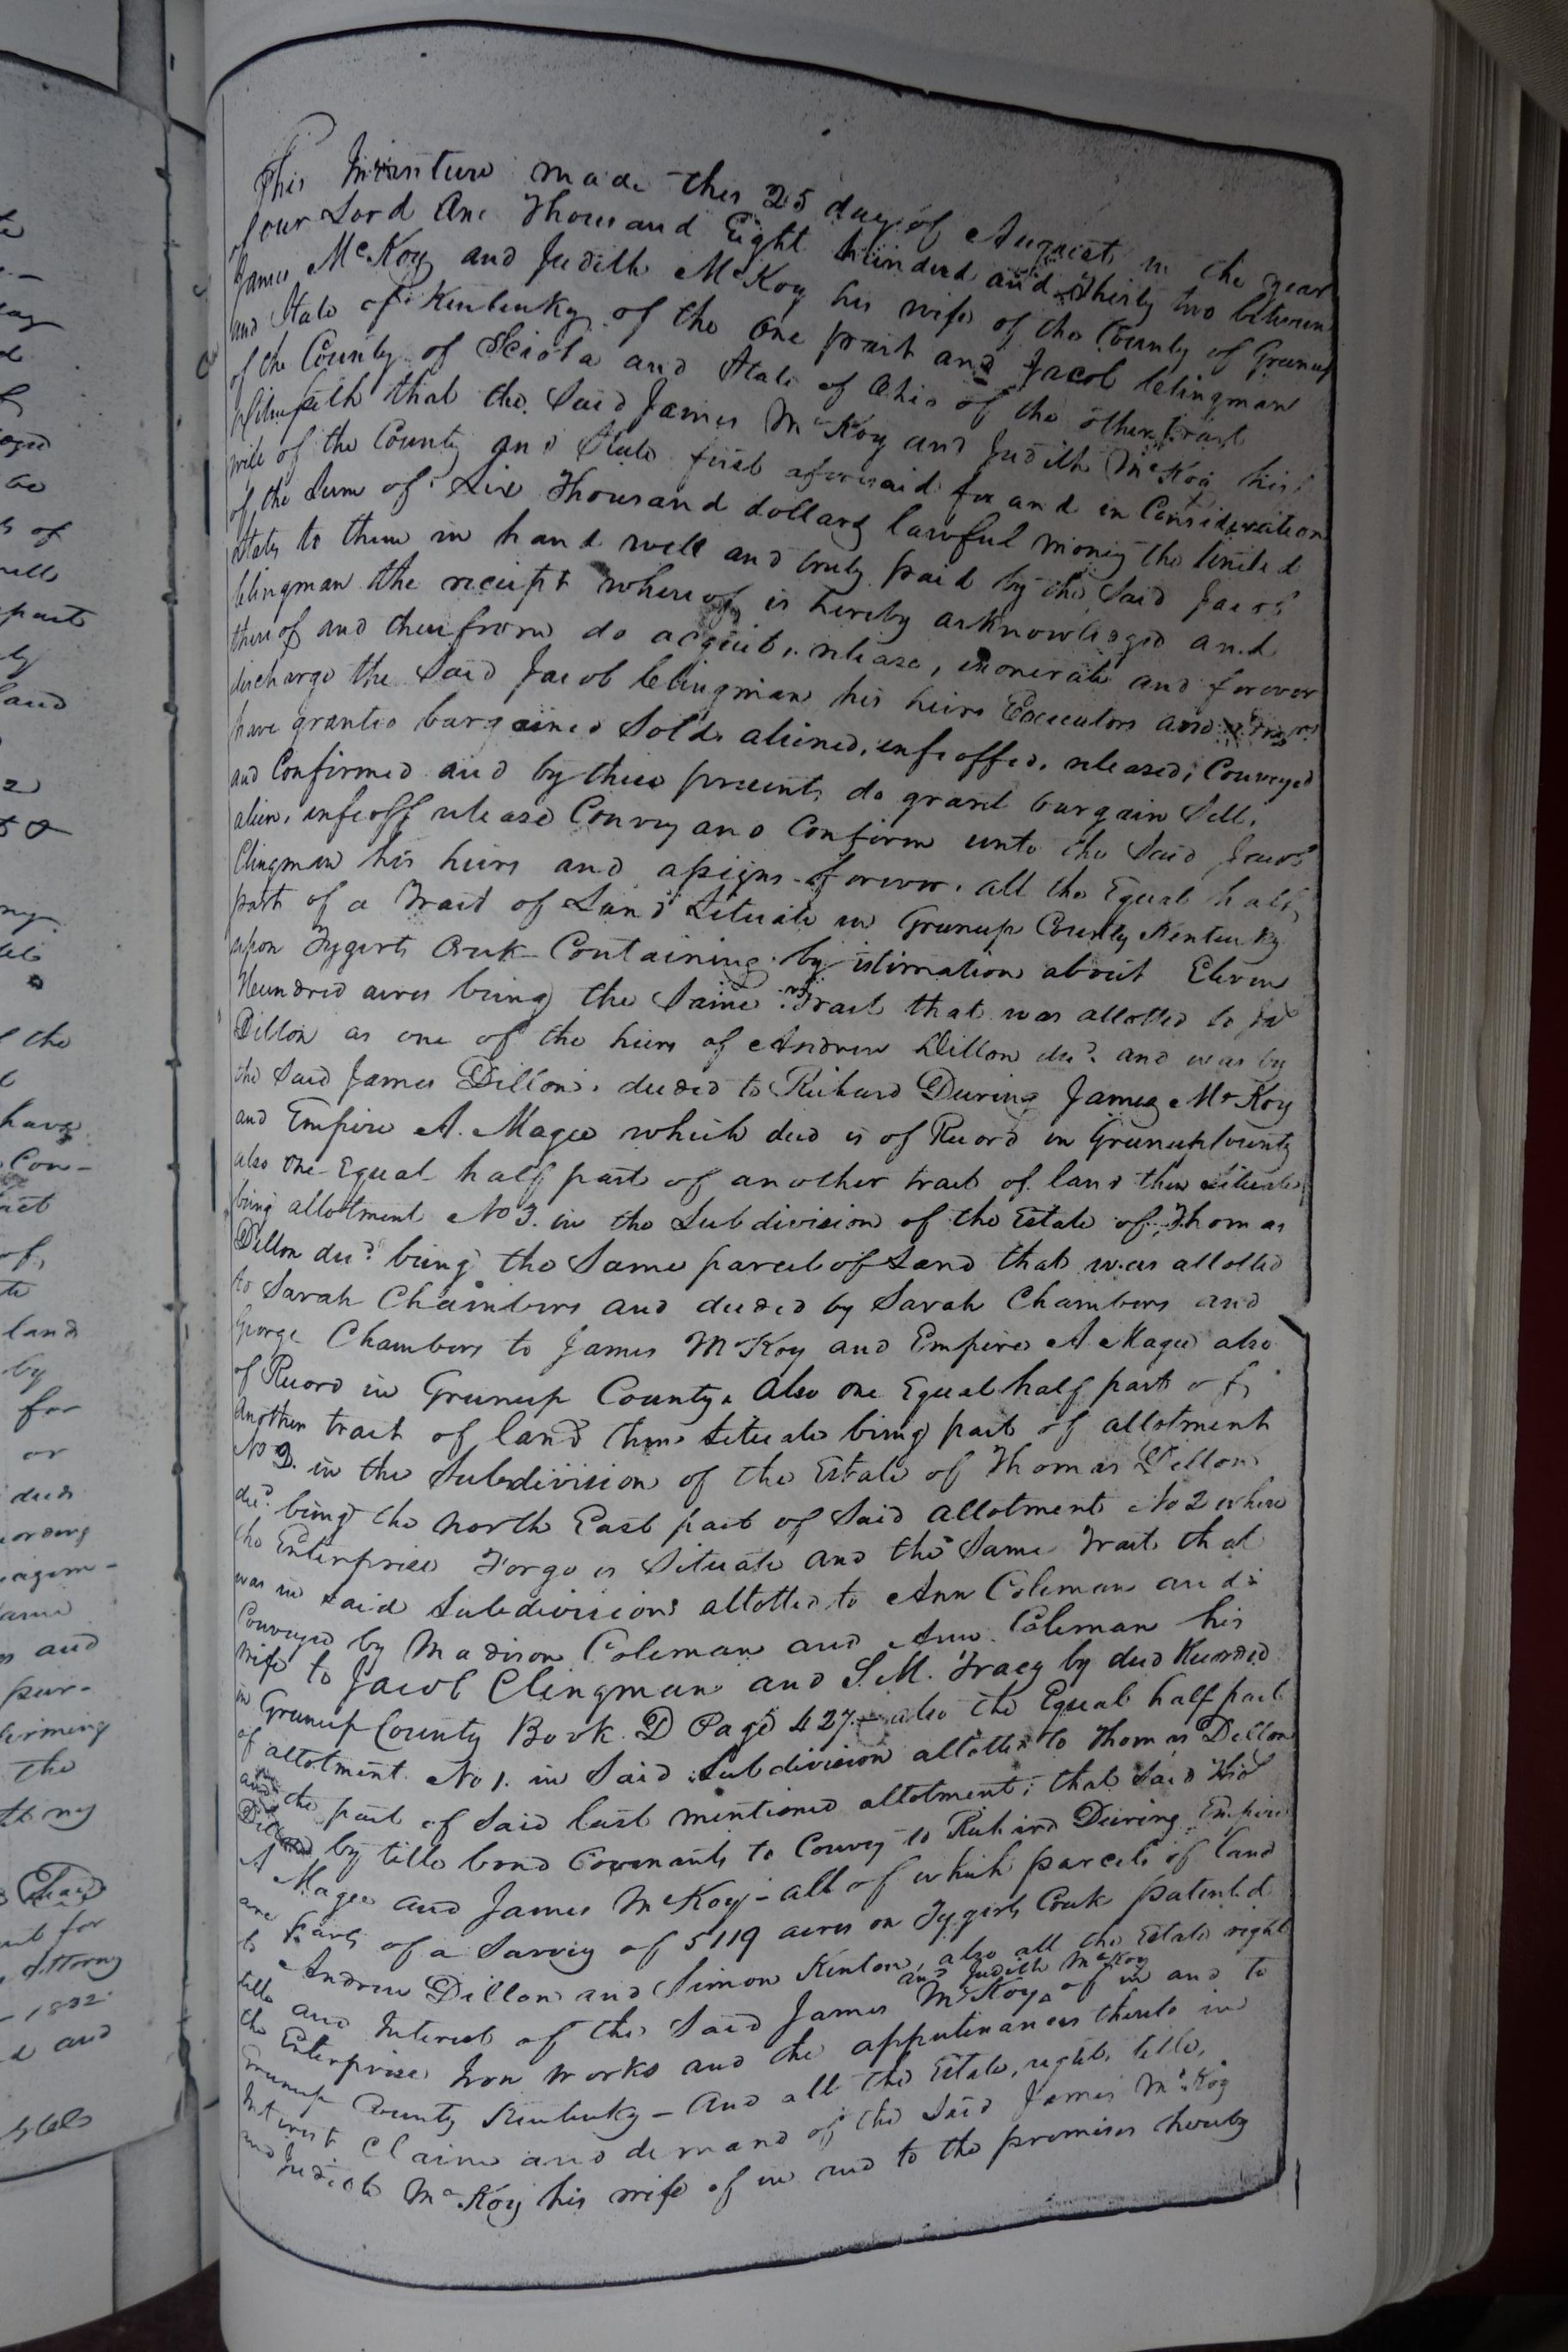 This Indenture made this 25 day of August in the year
of our Lord One Thousand Eight hundred and Thirty two between
James McKoy and Judith McKoy his wife of the County of Greenup
and State of Kentucky of the One part and Jacob Clingman
of the County of Sciota and State of Ohio of the other part
Witnesseth that the Said James McKoy and Judith McKoy his
wife of the County and State first aforesaid for and in Consideration
of the Sum of Six Thousand dollars lawful money the United
States to them in hand well and truly paid by the Said Jacob
Clingman the receipt whereof is hereby acknowledged and
thereof and therefrom do acquit, release, exonerate and forever
discharge the Said Jacob Clingman his heirs Executors and
have granted bargained Sold, aliened, enfeoffed, released, Conveyed
and Confirmed and by these presents do grant bargain Sell,
alien, enfeoff release Convey and Confirm unto the Said Jacob
Clingman his heirs and assigns forever, all the Equal half
part of a Tract of Land Situate in Greenup County Kentucky
upon Tygerts Creek Containing by estimation about Eleven
Hundred acres being the Same Tract that was allotted to Jas
Dillon as one of the heirs of Andrew Dillon decd. and was by
the Said James Dillon, deeded to Richard Deering James McKoy
and Empire A. Magee which deed is of Record in Greenup County
also one Equal half part of another tract of land there Situate
being allotment No 3. in the Subdivision of the Estate of Thomas
Dillon decd. being the Same parcel of Land that was allotted
to Sarah Chambers and deeded by Sarah Chambers and
George Chambers to James McKoy and Empire A Magee also
of Record in Greenup County. Also one Equal half part of
Another tract of land there Situate being part of allotment
No 2. in the Subdivision of the Estate of Thomas Dillon
decd. being the North East part of Said allotment No 2 where
the Enterprise Forge is Situate and the Same Tract that
was in Said Subdivision allotted to Ann Coleman and
Conveyed by Madison Coleman and Ann Coleman his
wife to Jacob Clingman and S. M. Tracy by deed Recorded
in Greenup County Book D Page 427 - also the Equal half part
of allotment No 1. in Said Subdivision allotted to Thomas Dillon
the part of Said last mentioned allotment, that Said Thos
Dillon by title bond Covenants to Convey to Richard Deering Empire
A Magee and James McKoy - all of which parcels of land
are parts of a Survey of 5119 acres on Tygerts Creek patented
to Andrew Dillon and Simon Kenton, also all the Estate right
and Judith McKoy
title and Interest of the Said James McKoy of in and to
the Enterprise Iron Works and the appurtenances thereto in
Greenup County Kentucky - And all the Estate, right, title,
Interest Claim and demand of the Said James McKoy
and Judith McKoy his wife of in and to the premises hereby